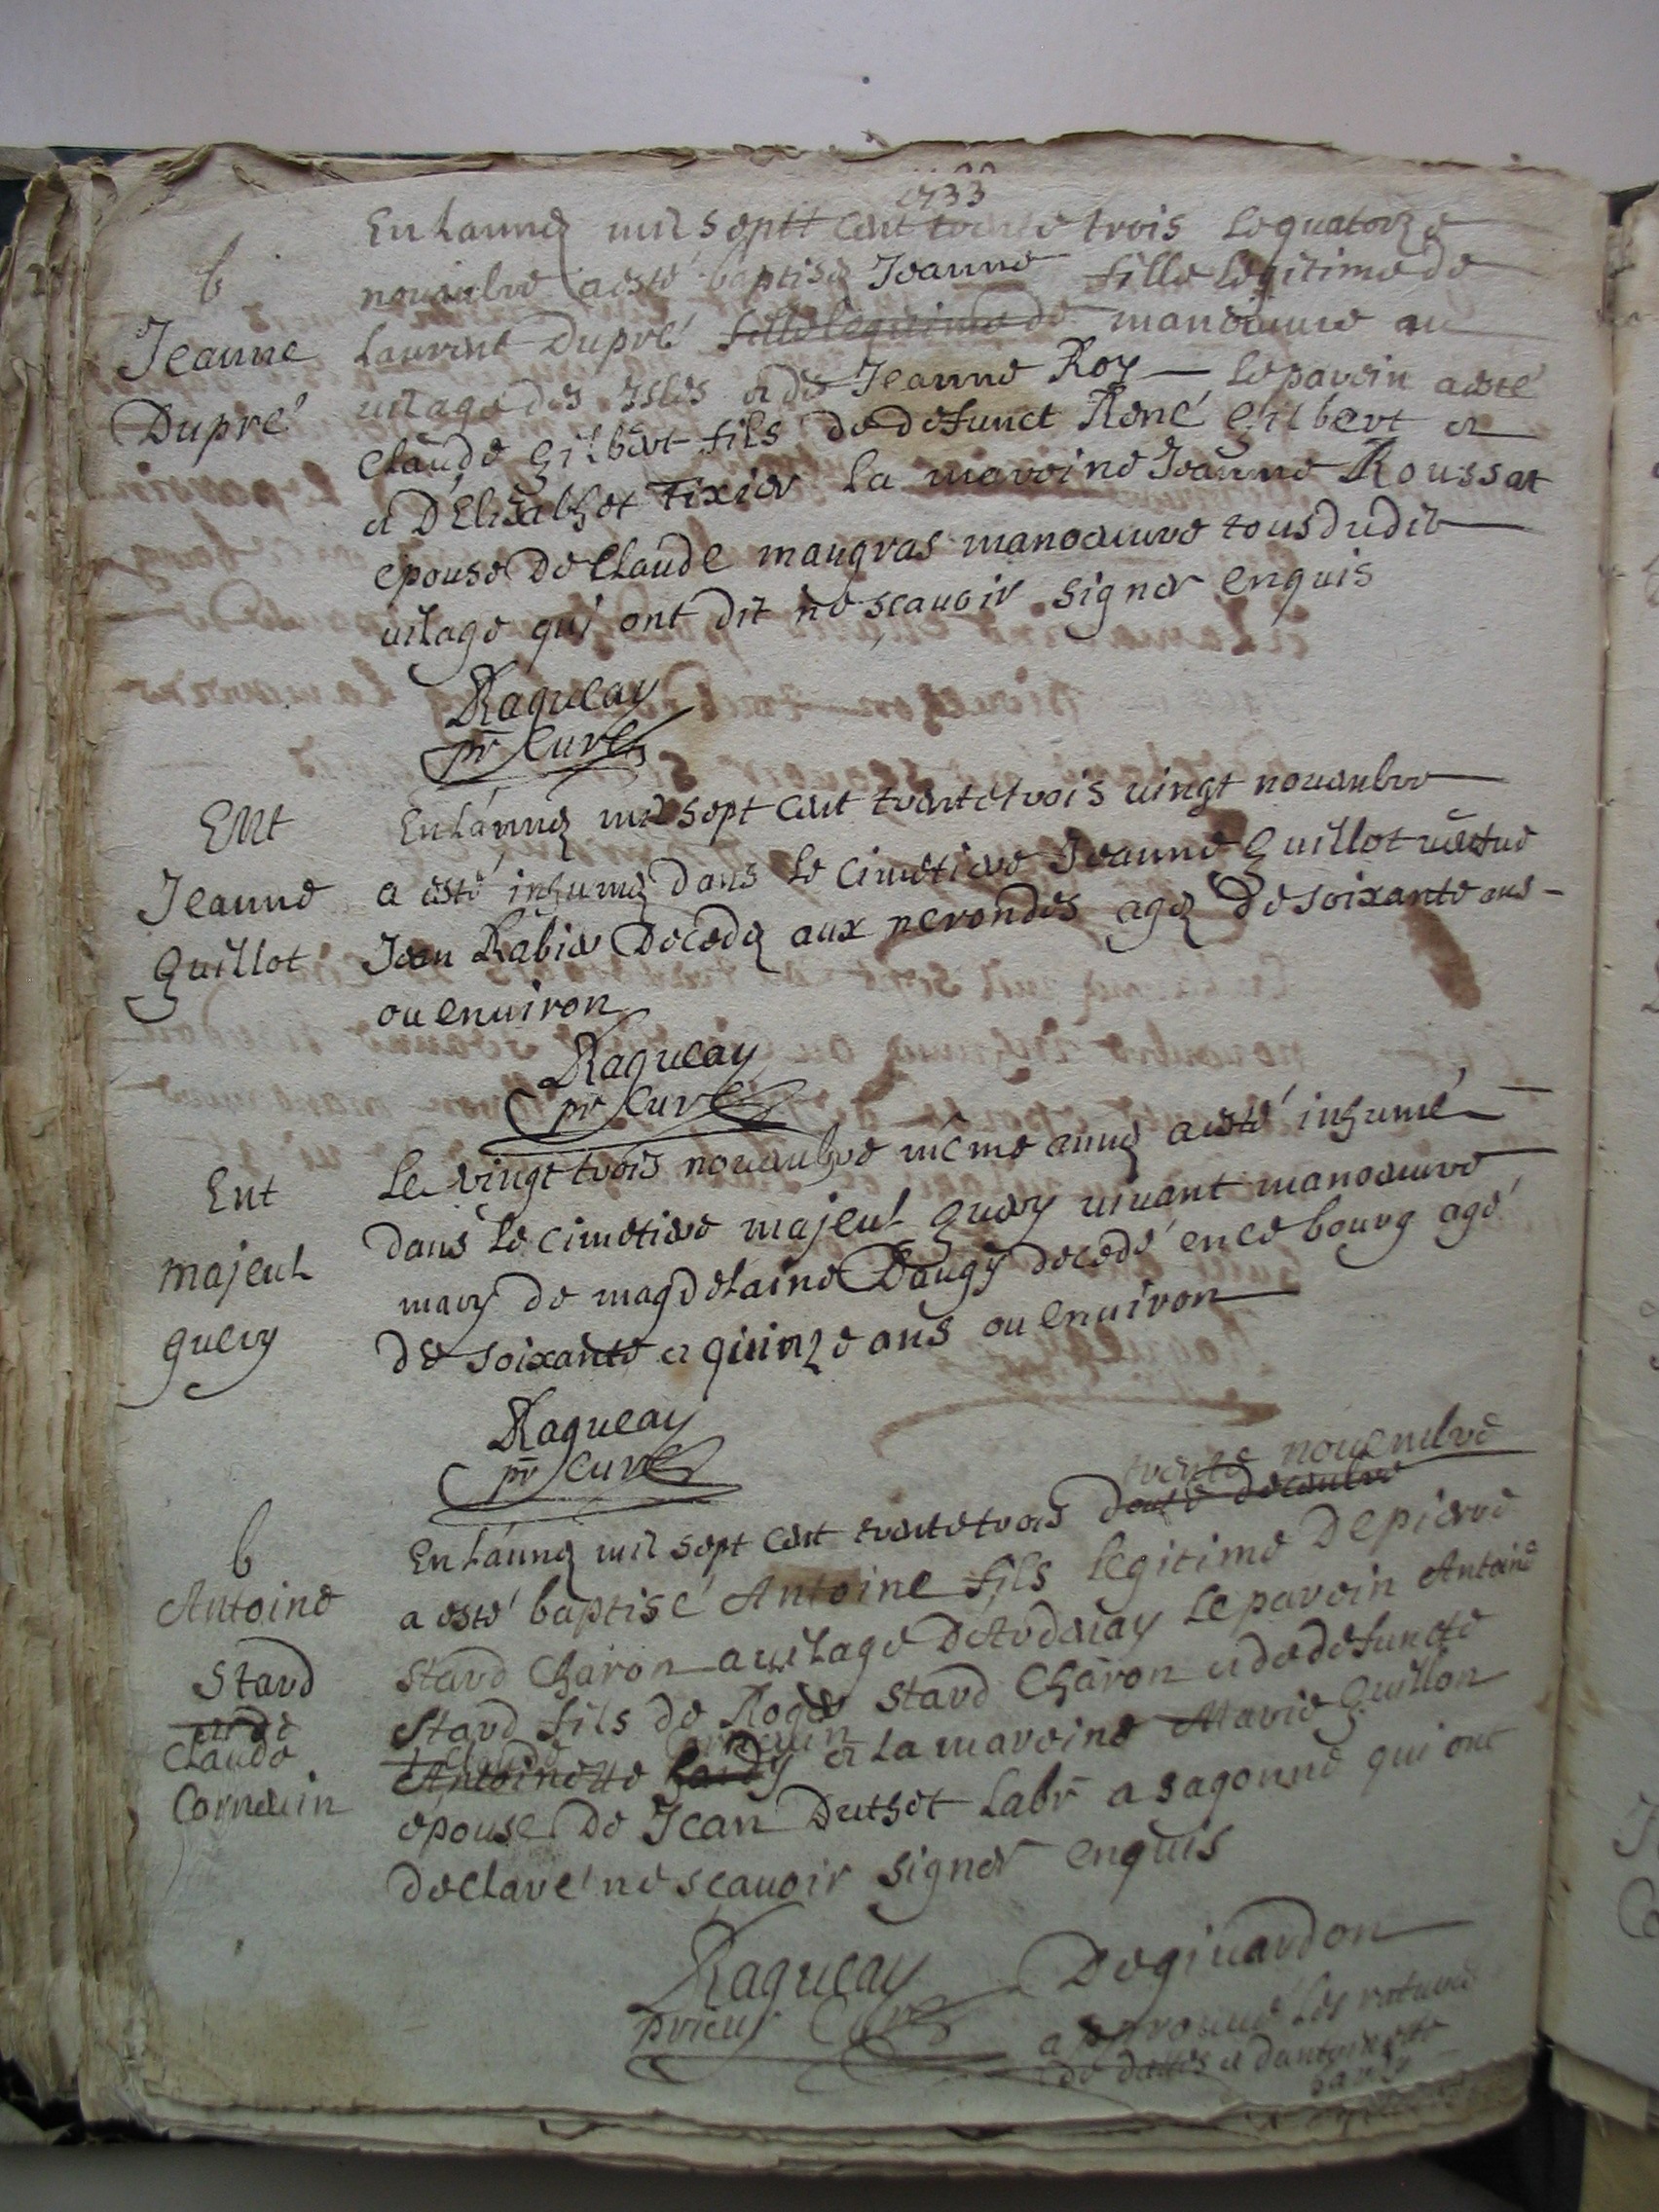 1733
b
Jeanne
Dupré
En Lannee mil septt cent trente trois le quatorze
nouembre a esté baptisee Jeanne fille legitime de
Laurent Dupré fille legitime de manoeuure au
uilage des Isles et de Jeanne Roy le parein a esté
Claude gilbert fils de defunct René gilbert et
et D'Elisabhet Tixier la mareine Jeanne Roussat
epouse De Claude maugras manoeuure tous dudit
uilage qui ont dit ne scauoir signer enquis
Ragueau
pr Curé
Ent
Jeanne
guillot
En Lannee mil sept cent trente trois uingt nouembre
a esté inhumee dans le cimetiere Jeanne guillot
Jean Rabier Decedee aux nerondes agee de soixante ans
ou enuiron
Ragueau
pr Curé
Ent
majeul
guery
Le vingt trois nouembre même annee a esté inhumé
dans le cimetiere majeul guery uiuant manoeuure
mary de magdelaine Daugy decedé en ce bourg agé
de soixante et quinze ans ou enuiron
Ragueau
pr Curé
b
Antoine
Stard
et de
Claude
Corneuin
trente nouembre
En Lannee mil sept cent trente trois decembre
a esté baptisé Antoine fils legitime De pierre
Stard Charon au uilage D'Ardenay le parein Antoine
Stard fils de Roger Stard Charon et de defuncte
Claude Corneuin
Antoinette hardy et la mareine Marie guillon
epouse De Jean Duthet labr a sagonne qui ont
declaré ne scauoir signer enquis
Ragueau Degiuardon
prieur Curé
approuué les rature
de dattes et dantoinette